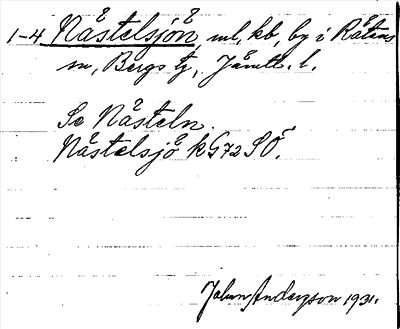 1-4 Nåstelsjön, ml, kb, by i Rätans
sn, Bergs tg, Jämtl. l.
Se Nåsteln.
Nåstelsjö k G72SÖ.
Johan Anderzson 1931.